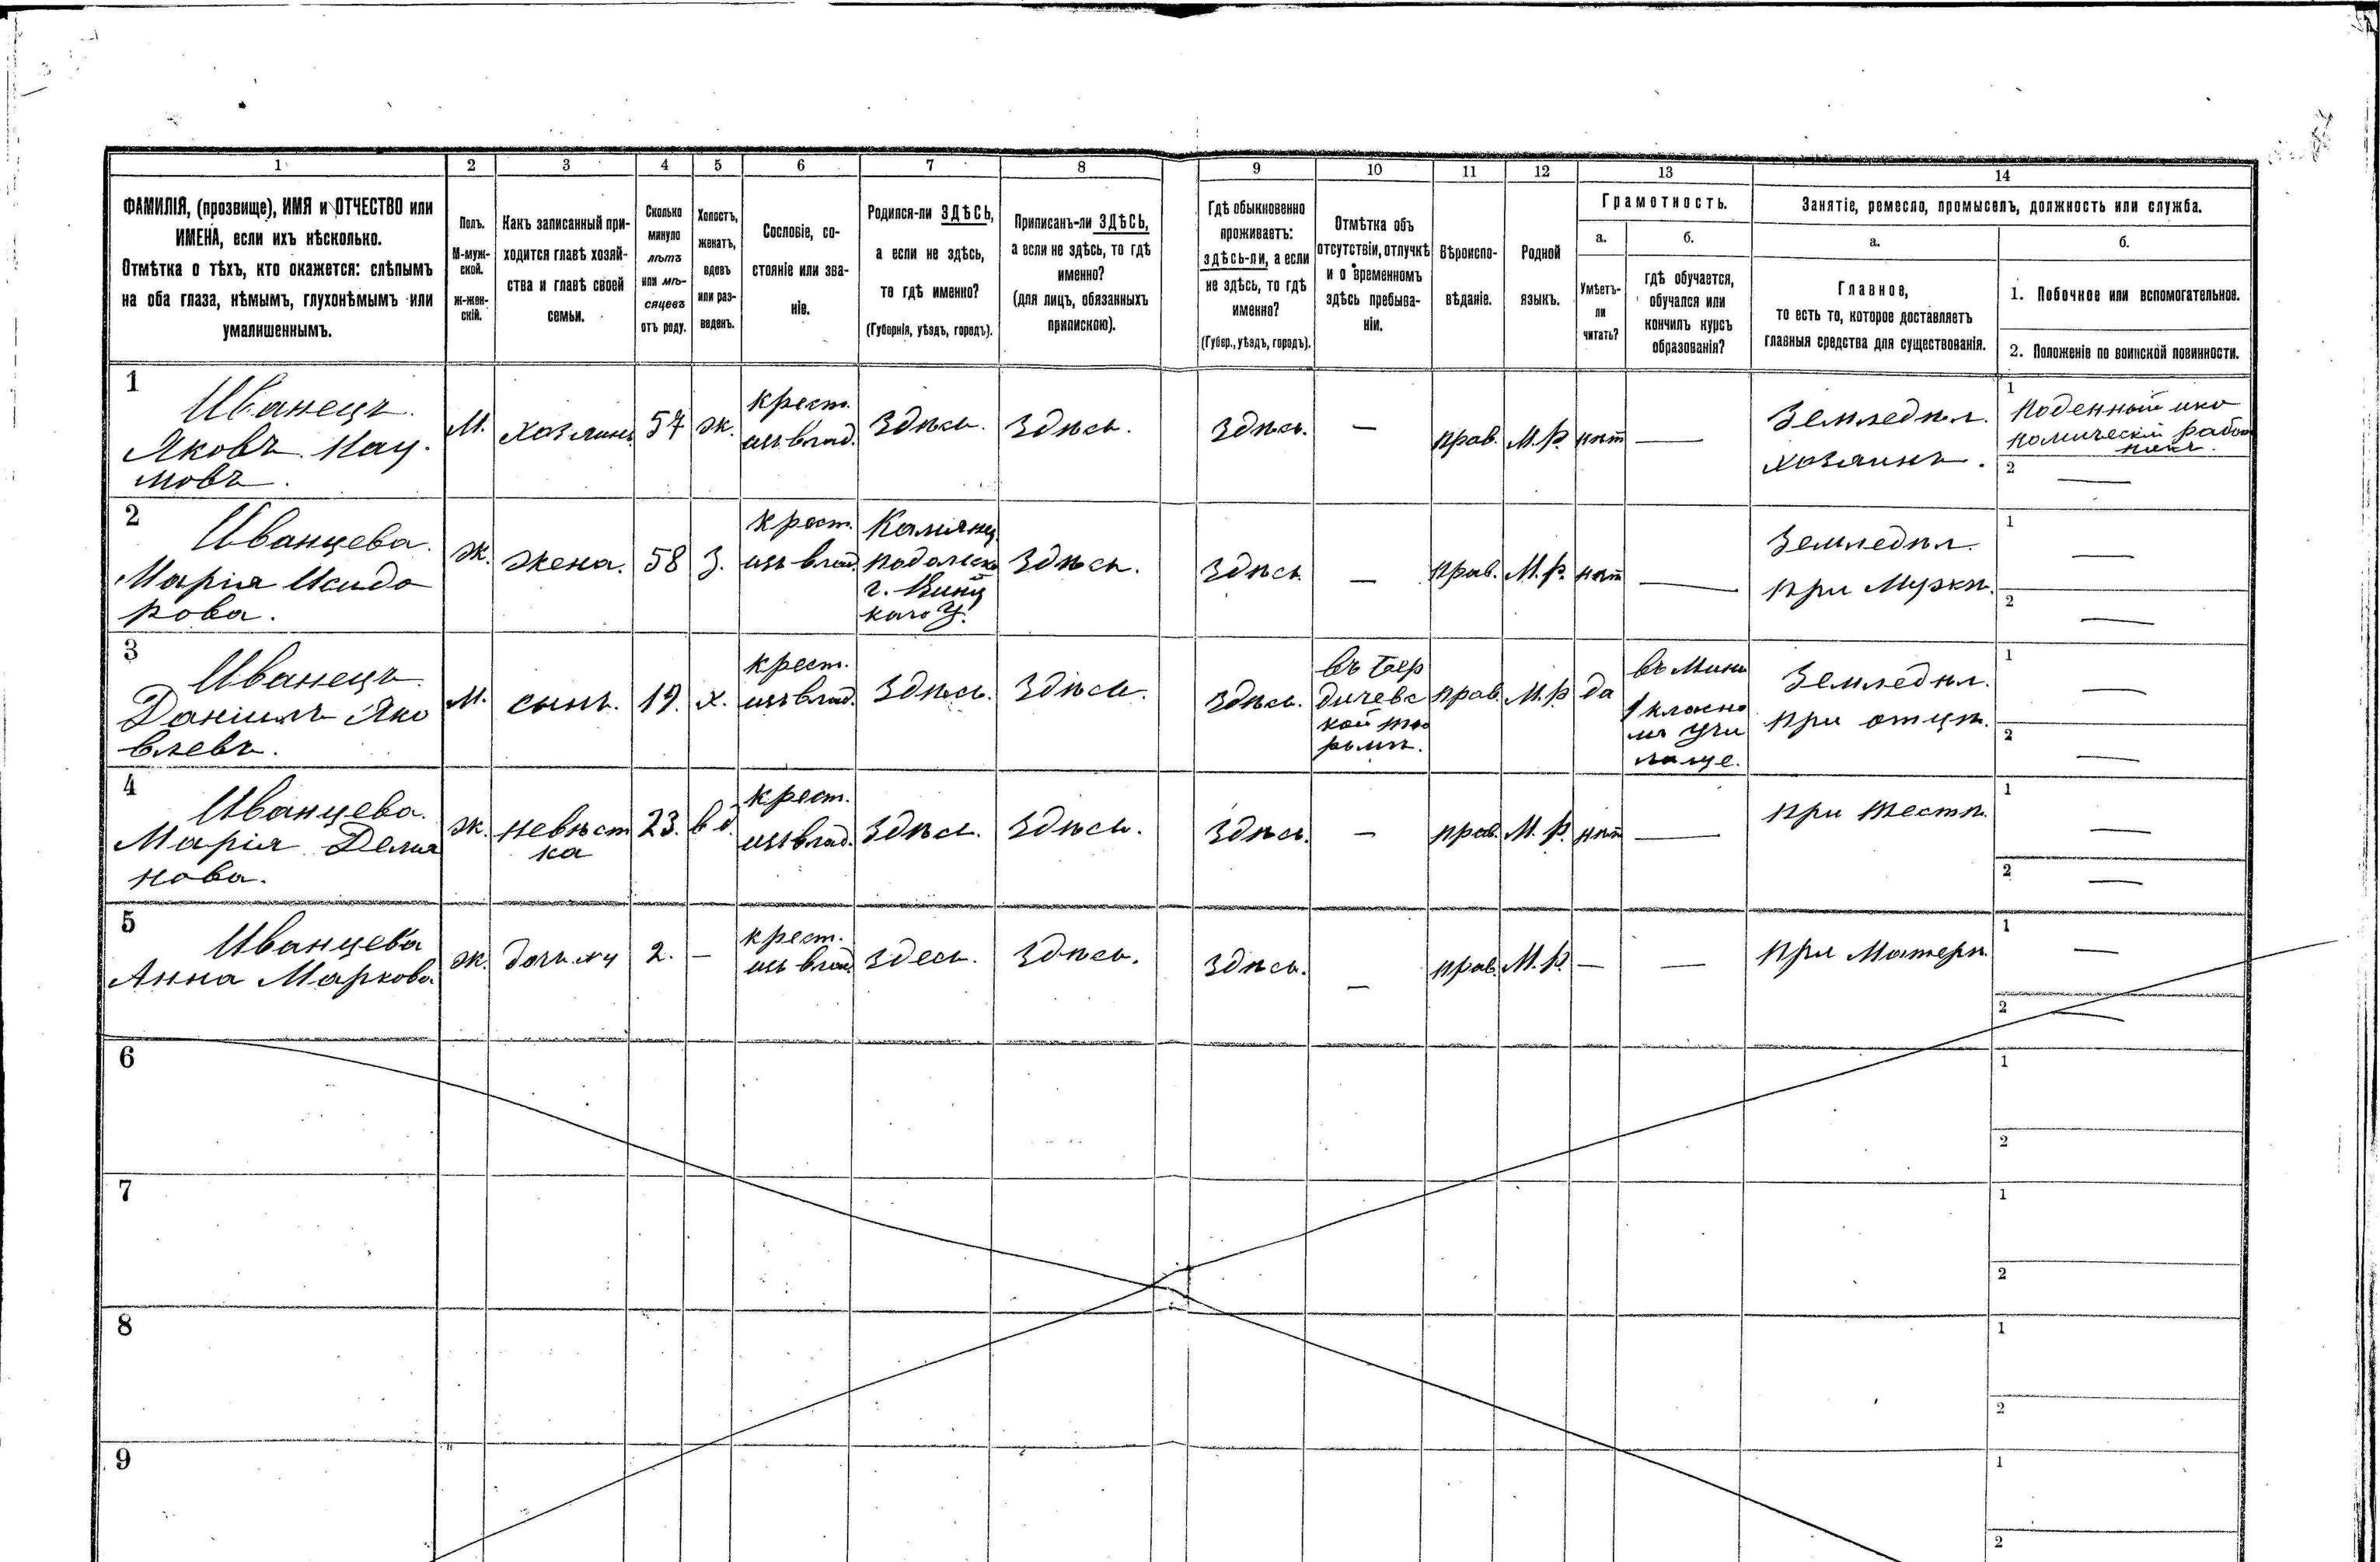 1 2 3 4 5 6 7 8 9 10 11 12 13 14
ФАМИЛІЯ, (прозвище), ИМЯ и ОТЧЕСТВО или
ИМЕНА, если ихъ нѣсколько.
Отмѣтка о тѣхъ, кто окажется: слѣпымъ
на оба глаза, нѣмымъ, глухонѣмымъ или
умалишеннымъ.
Полъ.
М-муж-
ской.
ж-жен-
скій.
Какъ записанный при-
ходится главѣ хозяй-
ства и главѣ своей
семьи.
Сколько
минуло
лѣтъ
или мѣ-
сяцевъ
отъ роду.
Холостъ,
женатъ,
вдовъ
или раз-
веденъ.
Сословіе, со-
стояніе или зва-
ніе.
Родился-ли ЗДѢСЬ,
а если не здѣсь,
то гдѣ именно?
(Губернія, уѣздъ, городъ).
Приписанъ-ли ЗДѢСЬ,
а если не здѣсь, то гдѣ
именно?
(для лицъ, обязанныхъ
припискою).
Гдѣ обыкновенно
проживаетъ:
здѣсь-ли, а если
не здѣсь, то гдѣ
именно?
(Губер., уѣздъ, городъ).
Отмѣтка объ
отсутствіи, отлучкѣ
и о временномъ
здѣсь пребыва-
ніи.
Вѣроиспо-
вѣданіе.
Родной
языкъ.
Грамотность.
а.
Умѣетъ-
ли
читать?
б.
гдѣ обучается,
обучался или
кончилъ курсъ
образованія?
Занятіе, ремесло, промыселъ, должность или служба.
а.
Главное,
то есть то, которое доставляетъ
главныя средства для существованія.
б.
1. Побочное или вспомогательное.
2. Положеніе по воинской повинности.
1
Иванецъ.
Яковъ Нау.
мовъ.
М.
хозяинъ
57
ж.
крест.
изъ влад.
Здѣсь.
Здѣсь.
Здѣсь.
—
прав.
М.Р.
нѣт
—
Земледѣл.
хозяинъ.
1
Поденный ико
номическій работ
никъ.
2
—
2
Иванцева.
Марія Исидо
рова.
ж.
жена.
58
З.
крест.
изъ влад.
Камянец
подольско
г. Виниц
каго У.
Здѣсь.
Здѣсь
—
прав.
М.Р.
нѣт
—
Земледѣл.
при Мужѣ.
1
—
2
—
3
Иванецъ.
Даніилъ Яко
влевъ.
М.
сынъ.
19.
х.
крест.
изъ влад.
Здѣсь.
Здѣсь.
Здѣсь.
въ Бер
дичевс
кой тю
рьмѣ.
прав.
М.Р.
да
въ Мин
1 класно
мъ Учи
лище.
Земледѣл.
при отцѣ.
1
—
2
—
4
Иванцева.
Марія Демья
нова.
ж.
невѣст
ка
23.
вд.
крест.
изъ влад.
Здѣсь.
Здѣсь.
Здѣсь.
—
прав.
М.Р.
нѣт
—
при тестѣ.
1
—
2
—
5
Иванцева
Анна Маркова
ж.
дочь №4
2.
—
крест.
изъ влад.
Здесь.
Здѣсь.
Здѣсь.
—
прав.
М.Р.
—
—
при Матери.
1
—
2
—
6
1
2
7
1
2
8
1
2
9
1
2